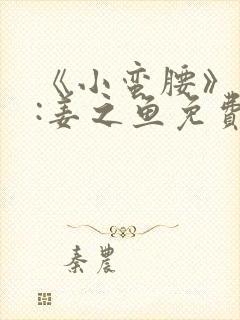 《小蛮腰》
:姜之鱼免費
秦農